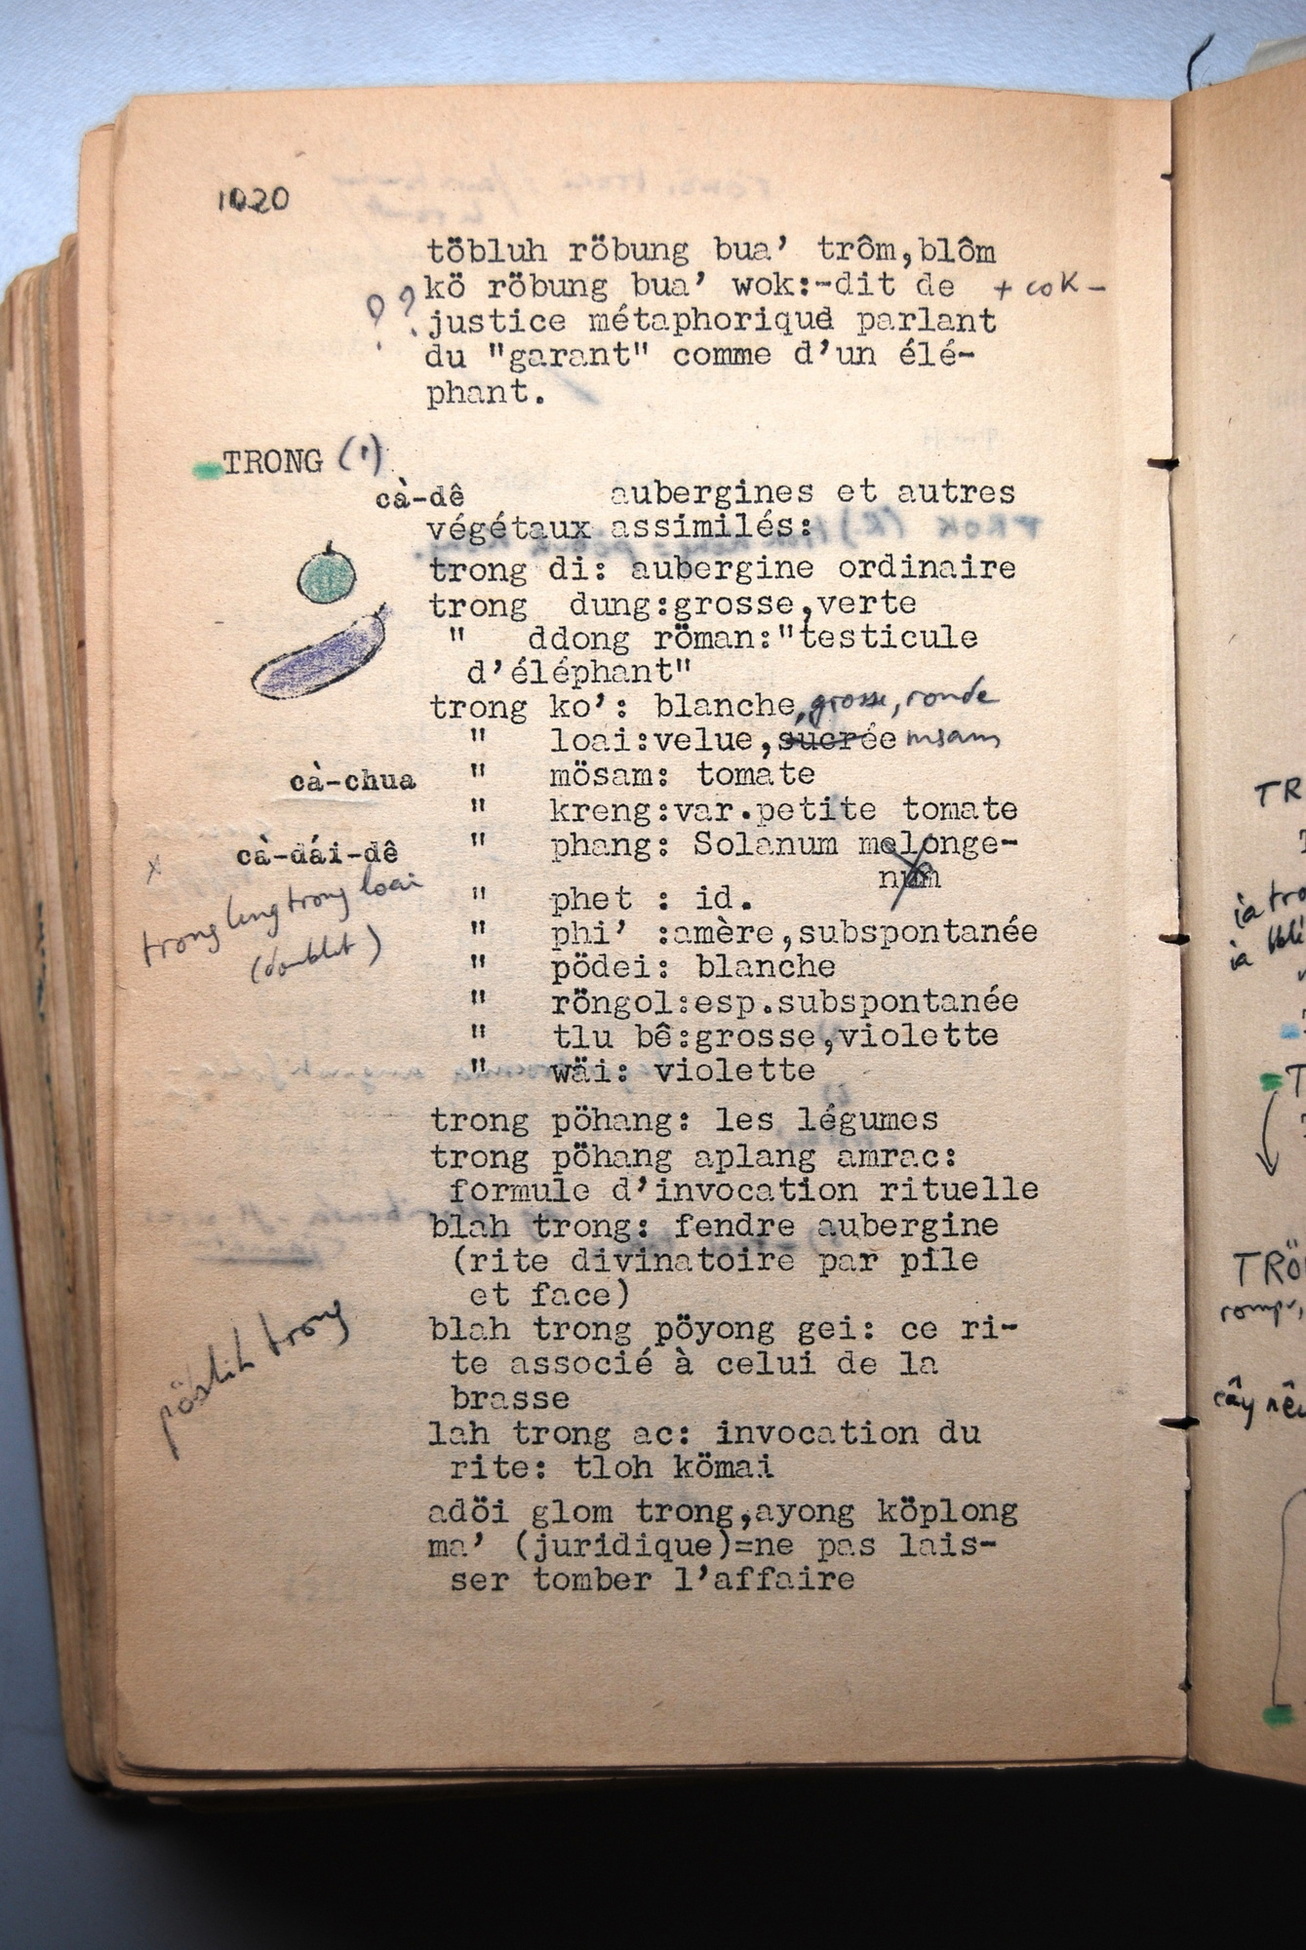 1020
töbluh röbung bua' trôm,blôm
kö röbung bua' wok:-dit de + coK -
?? justice métaphorique parlant
du "garant" comme d'un élé-
phant.
TRONG (1)
cà-dê aubergines et autres
végétaux assimilés:
trong di: aubergine ordinaire
trong dung:grosse,verte
" ddong röman:"testicule
d'éléphant"
trong ko': blanche,grosse, ronde
" loai:velue,sucrée msam
cà-chua " mösam: tomate
" kreng:var.petite tomate
cà-dái-dê " phang: Solanum melonge-
num
x trong leng trong loai
(doublet)
" phet : id.
" phi' :amère,subspontanée
" pödei: blanche
" röngol:esp.subspontanée
" tlu bê:grosse,violette
" wäi: violette
trong pöhang: les légumes
trong pöhang aplang amrac:
formule d'invocation rituelle
blah trong: fendre aubergine
(rite divinatoire par pile
et face)
blah trong pöyong gei: ce ri-
te associé à celui de la
brasse
pöblih trong
lah trong ac: invocation du
rite: tloh kömai
adöi glom trong,ayong köplong
ma' (juridique)=ne pas lais-
ser tomber l'affaire
TR
ia tro
ia
TRÖ
romp,
cây nêu